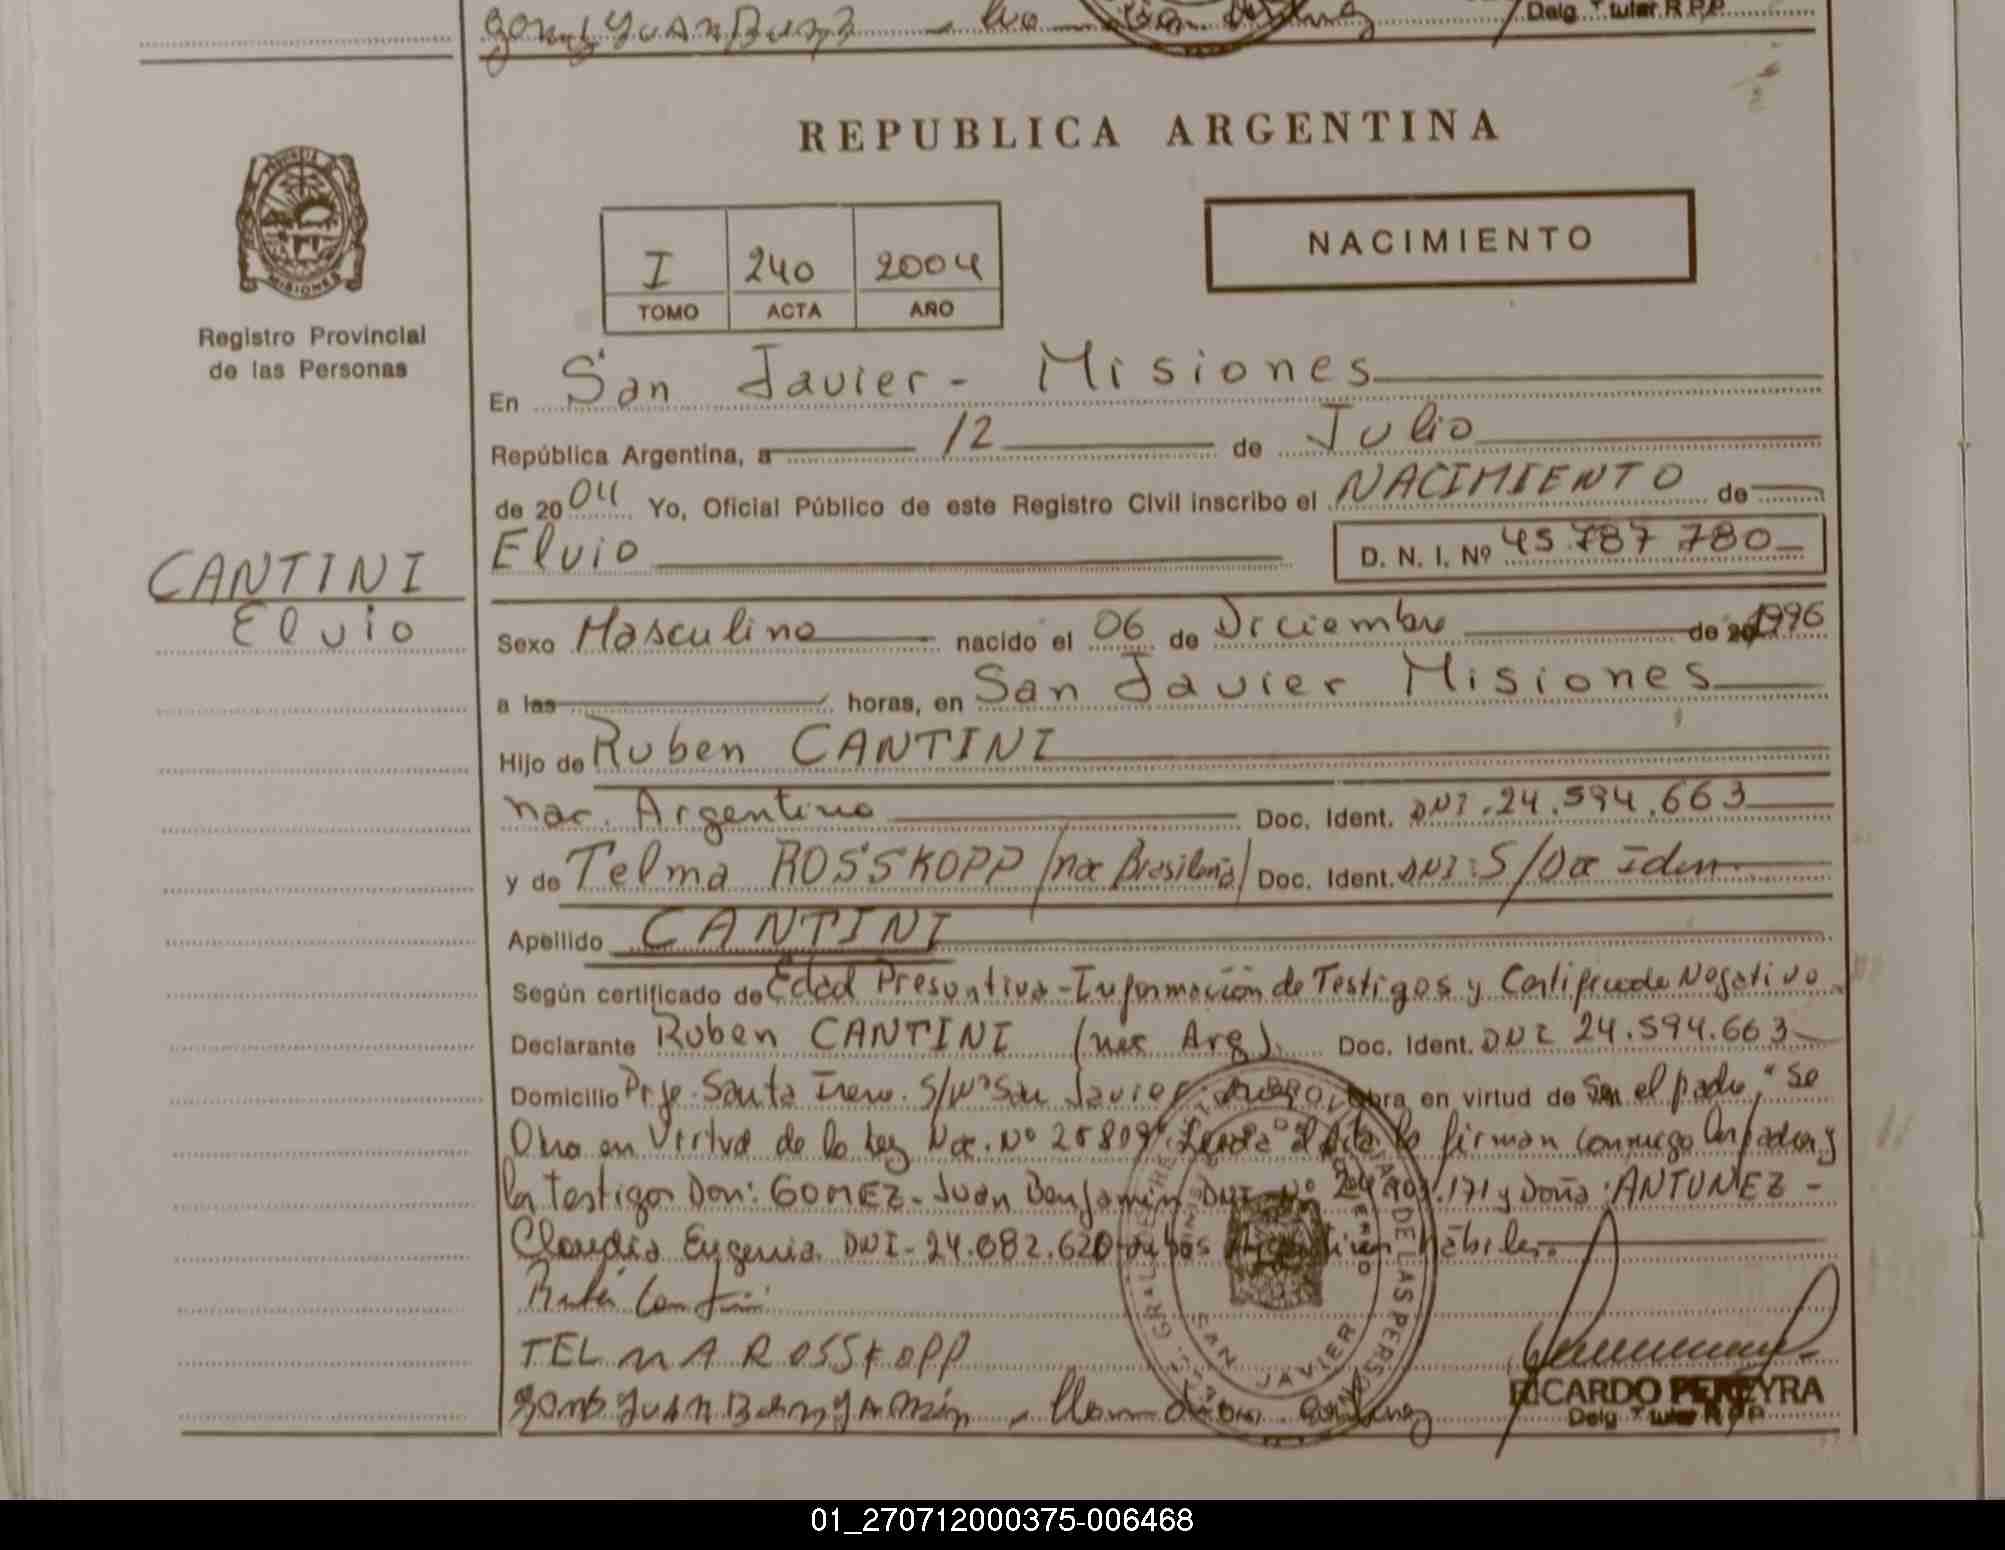 Delg. Titular R.P.P.
REPUBLICA ARGENTINA
PROVINCIA DE MISIONES
Registro Provincial
de las Personas
I 240 2004
TOMO ACTA AÑO
NACIMIENTO
En San Javier - Misiones
República Argentina, a 12 de Julio
de 2004 Yo, Oficial Público de este Registro Civil inscribo el NACIMIENTO de
Elvio D. N. I. Nº 45.787 780
CANTINI
Elvio
Sexo Masculino nacido el 06 de Diciembre de 1996
a las horas, en San Javier Misiones
Hijo de Ruben CANTINI
nac. Argentino Doc. Ident. DNI.24.594.663
y de Telma ROSSKOPP /nac Brasileña/ Doc. Ident. DNI: S/Doc Iden
Apellido CANTINI
Según certificado de Edad Presuntiva - Información de Testigos y Certificado Negativo
Declarante Ruben CANTINI (nac Arg). Doc. Ident. DNI 24.594.663
Domicilio Pje. Santa Irene. S/Nº San Javier obra en virtud de Ser el padre, "Se
Obro en Virtud de la Ley Nac. Nº 25809". Leida el Acta la firman conmigo los padres y
los testigos Don: GOMEZ - Juan Benjamin DNI Nº y Doña: ANTUNEZ -
Claudia Eugenia DNI - 24.082.620 ambos Argentinos hábiles.
Rubén Cantini
TELMA ROSSKOPP
Gomez JUAN BENJAMIN
SAN JAVIER
RICARDO PEREYRA
Delg. Titular R.P.P.
01_270712000375-006468